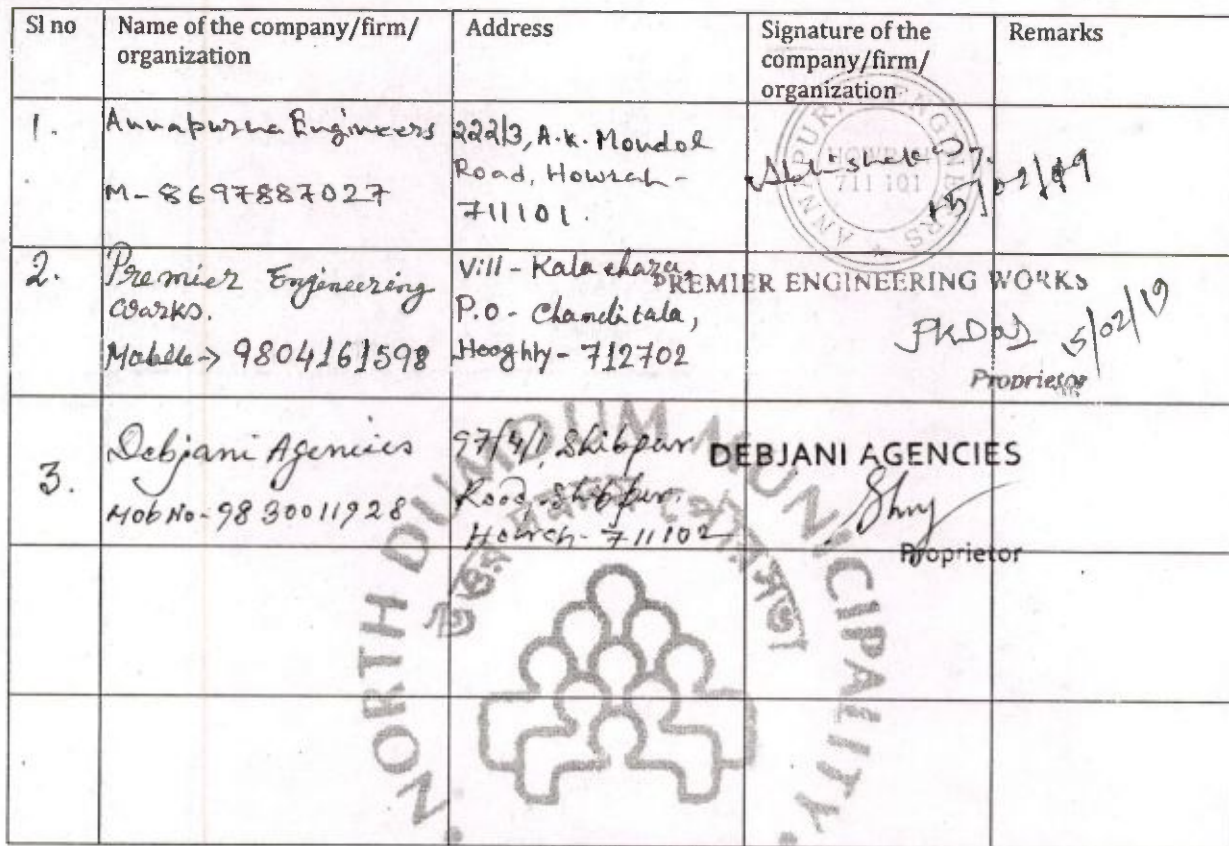 Sl no
Name of the company/firm/
organization
Address
Signature of the
company/firm/
organization
Remarks
1.
Annapurna Engineers
M- 8697887027
222/3, A.K. Mondol
Road, Howrah-
711101.
ANNAPURNA ENGINEERS
HOWRAH
711 101
Abhishek
15/02/19
2.
Premier Engineering
Works.
Mobile-> 9804161598
Vill - Kalachara,
P.O - Chanditala,
Hooghly - 712702
PREMIER ENGINEERING WORKS
PKDas 5/02/19
Proprietor
3.
Debjani Agencies
Mob No- 9830011928
97/4/1, Shibpur
Road, Shibpur.
Howrah- 711102
DEBJANI AGENCIES
Proprietor
NORTH DUM DUM MUNICIPALITY
উত্তর দমদম পৌরসভা